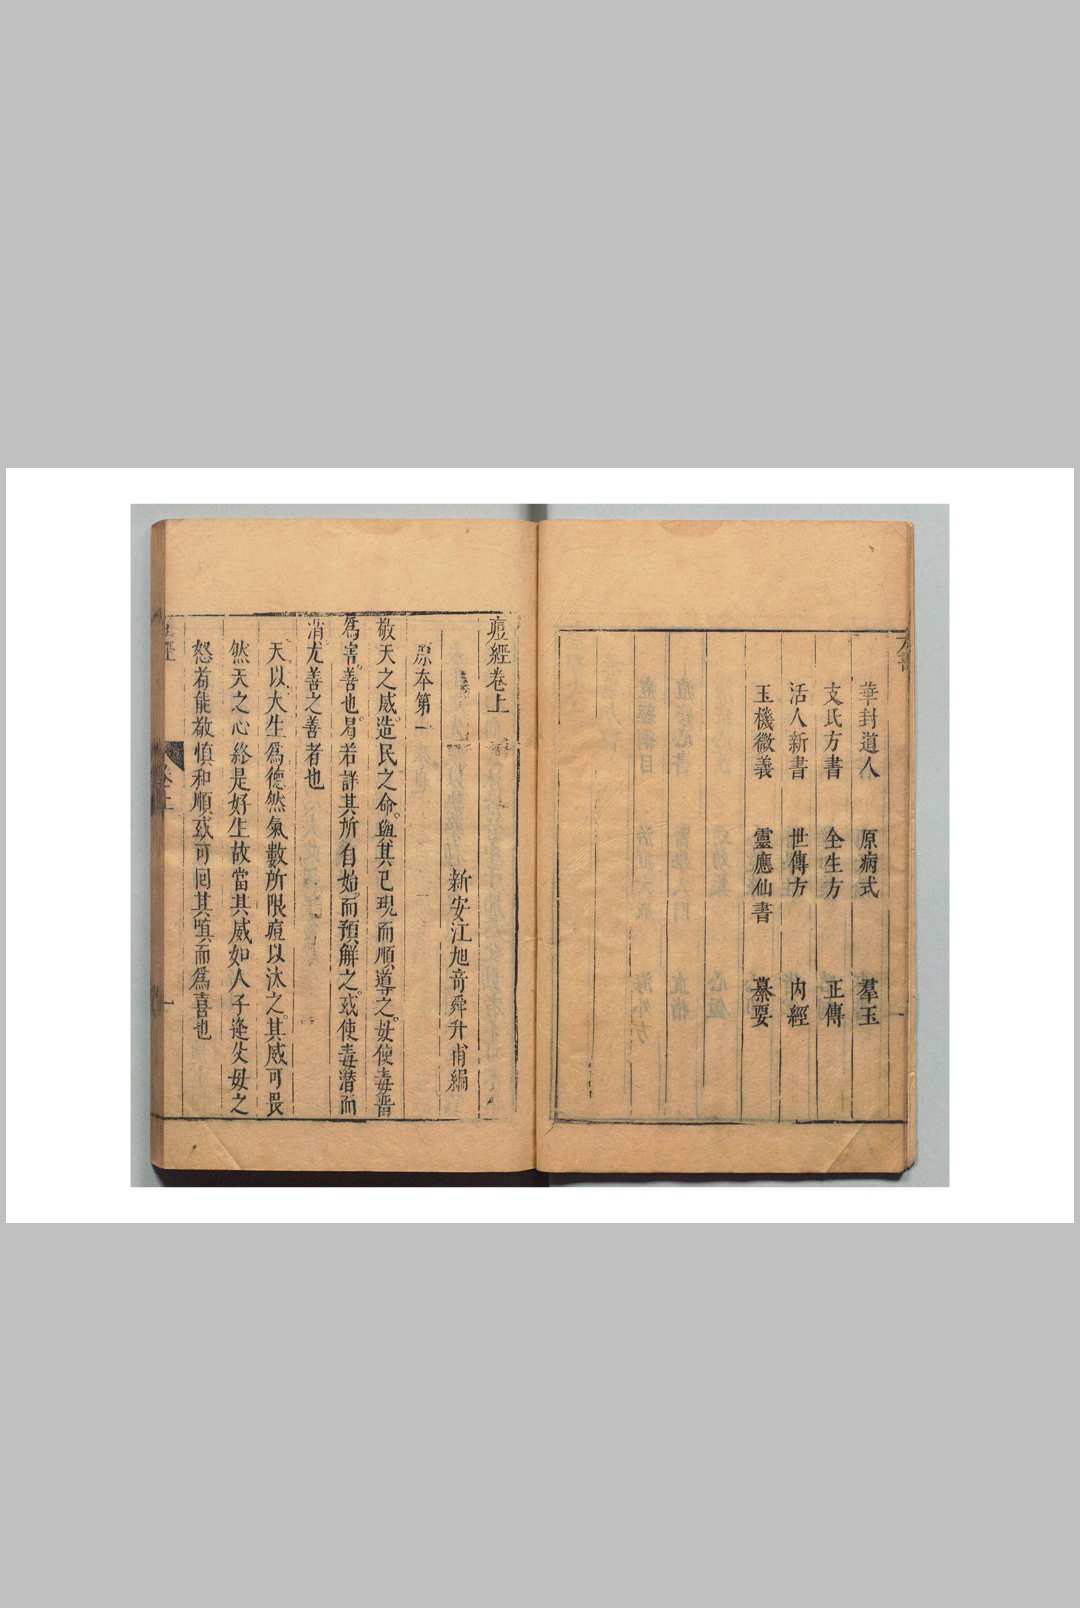 華封道人　原病式　羣玉
文氏方書　全生方　正傳
活人新書　世傳方　內經
玉機微義　靈應仙書　纂要
痘經卷上
新安江旭奇舜升甫編
原本第一
敬天之威。造民之命。與其已現而順導之。毋使毒醬
爲害善也。曷若詳其所自始。而預解之。或使毒潛而
消尤善之善者也
天以大生爲德然氣數所限痘以汰之。其威可畏
然天之心終是好生故當其威如人子逢父母之
怒若能敬慎和順或可囘其嗔而爲喜也
卷上
一